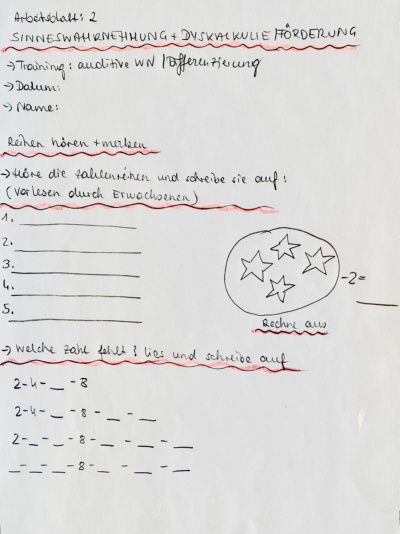 Arbeitsblatt: 2
SINNESWAHRNEHMUNG + DYSKALKULIE/FÖRDERUNG
→ Training: auditive WN / Differenzierung
→ Datum:
→ Name:
Reihen hören + merken
→ Höre die Zahlenreihen und schreibe sie auf:
(Vorlesen durch Erwachsenen)
1. ____
2. ____
3. ____
4. ____
5. ____
-2= ____
Rechne aus
→ Welche Zahl fehlt? lies und schreibe auf
2-4-__-8
2-4-__-8-__-__
2-__-__-8-__-__-__
__-__-__-8-__-__-__